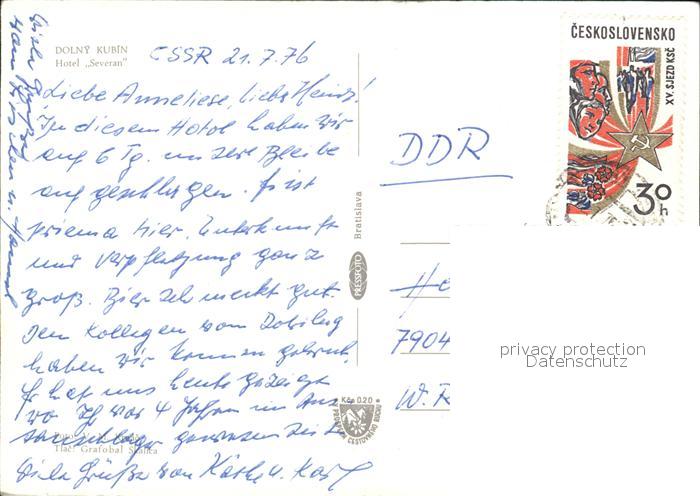 DOLNÝ KUBÍN
Hotel „Severan"
ČSSR 21.7.76
Liebe Anneliese, lieber Heinz!
In diesem Hotel haben wir
auf 6 Tg. unsere Bleibe
aufgeschlagen. Es ist
prima hier. Unterkunft
und Verpflegung ganz
groß. Bier schmeckt gut.
Den Kollegen vom
haben wir kennen gelernt.
Er hat uns heute gezeigt
wo Ihr vor 4 Jahren im
gewesen seid.
Viele Grüße von Käthe u. Karl
Viele Grüße
von
Tlač: Grafobal Skalica
Bratislava
PRESSFOTO
Kčs 0.20
DDR
7904
W.
ČESKOSLOVENSKO
XV. SJEZD KSČ
30 h
privacy protection
Datenschutz